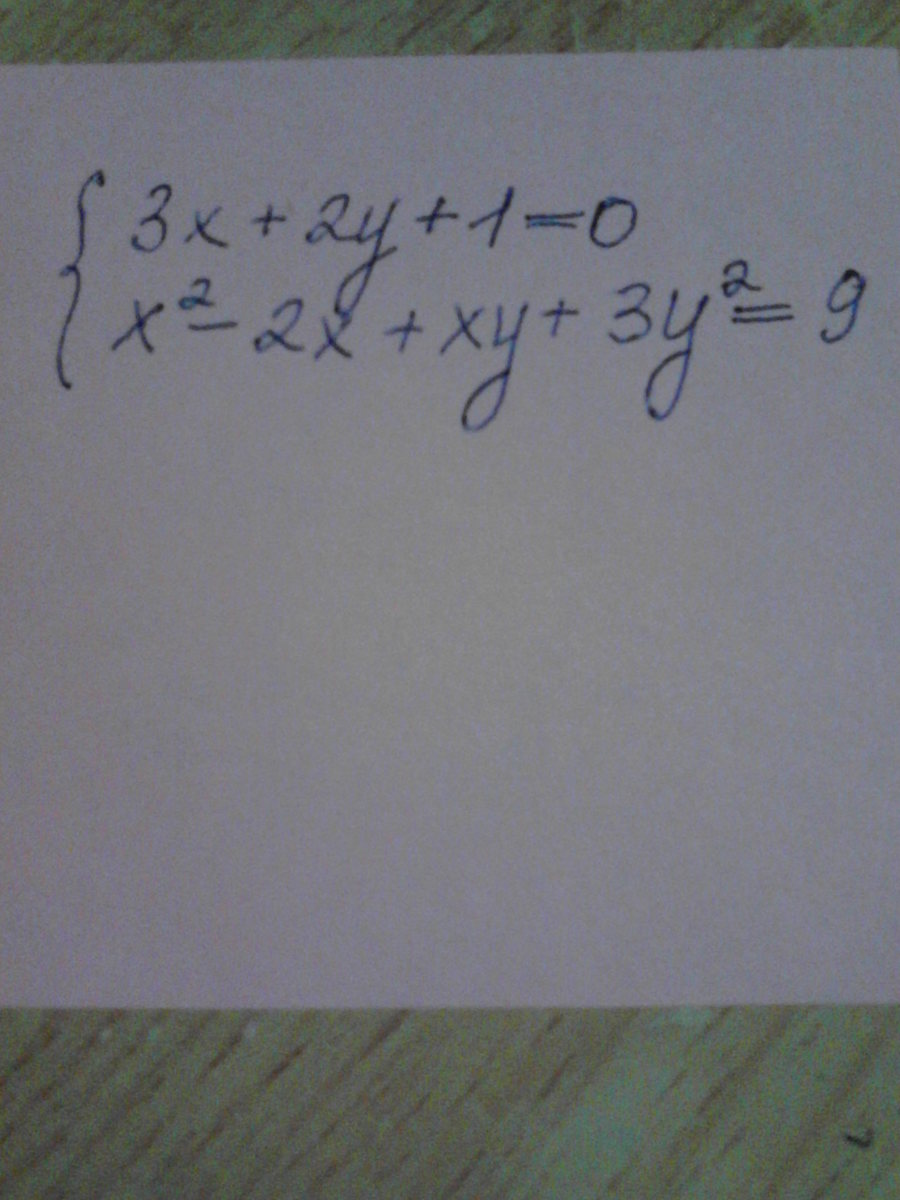 3x + 2y + 1 = 0
x² - 2x + xy + 3y² = 9